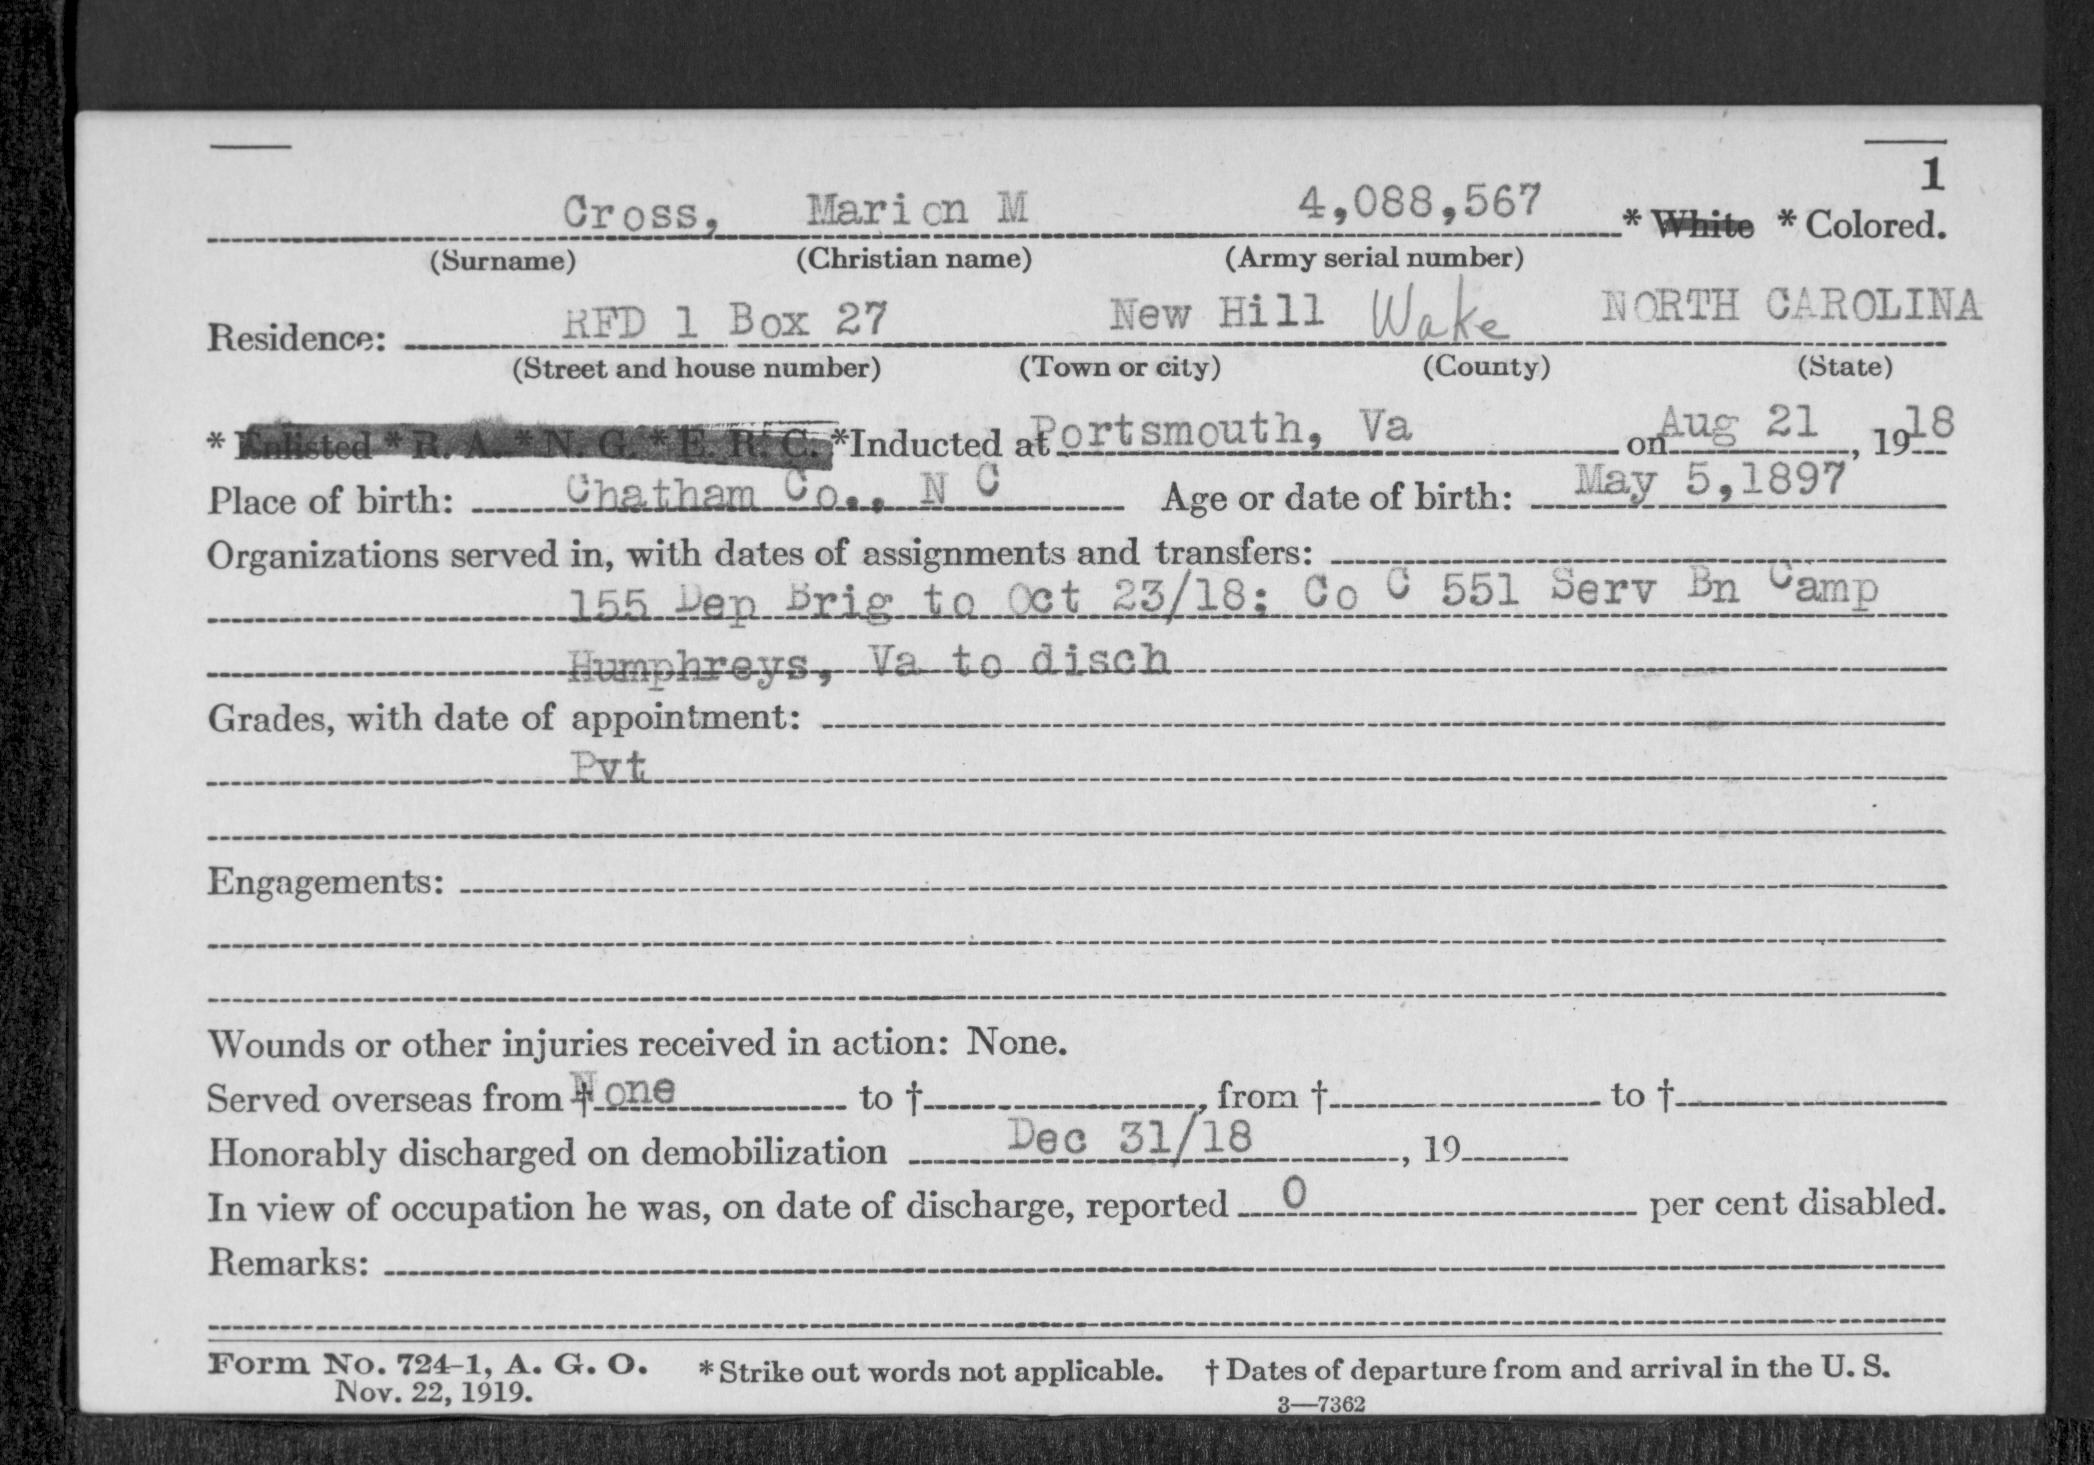 1
Cross, Marion M 4,088,567 * White * Colored.
(Surname) (Christian name) (Army serial number)
Residence: RFD 1 Box 27 New Hill Wake NORTH CAROLINA
(Street and house number) (Town or city) (County) (State)
* Enlisted * R. A. * N. G. * E. R. C. *Inducted at Portsmouth, Va on Aug 21, 1918
Place of birth: Chatham Co., N C Age or date of birth: May 5,1897
Organizations served in, with dates of assignments and transfers:
155 Dep Brig to Oct 23/18; Co C 551 Serv Bn Camp
Humphreys, Va to disch
Grades, with date of appointment:
Pvt
Engagements:
Wounds or other injuries received in action: None.
Served overseas from † None to †, from † to †
Honorably discharged on demobilization Dec 31/18, 19
In view of occupation he was, on date of discharge, reported 0 per cent disabled.
Remarks:
Form No. 724-1, A. G. O. * Strike out words not applicable. † Dates of departure from and arrival in the U. S.
Nov. 22, 1919. 3—7362